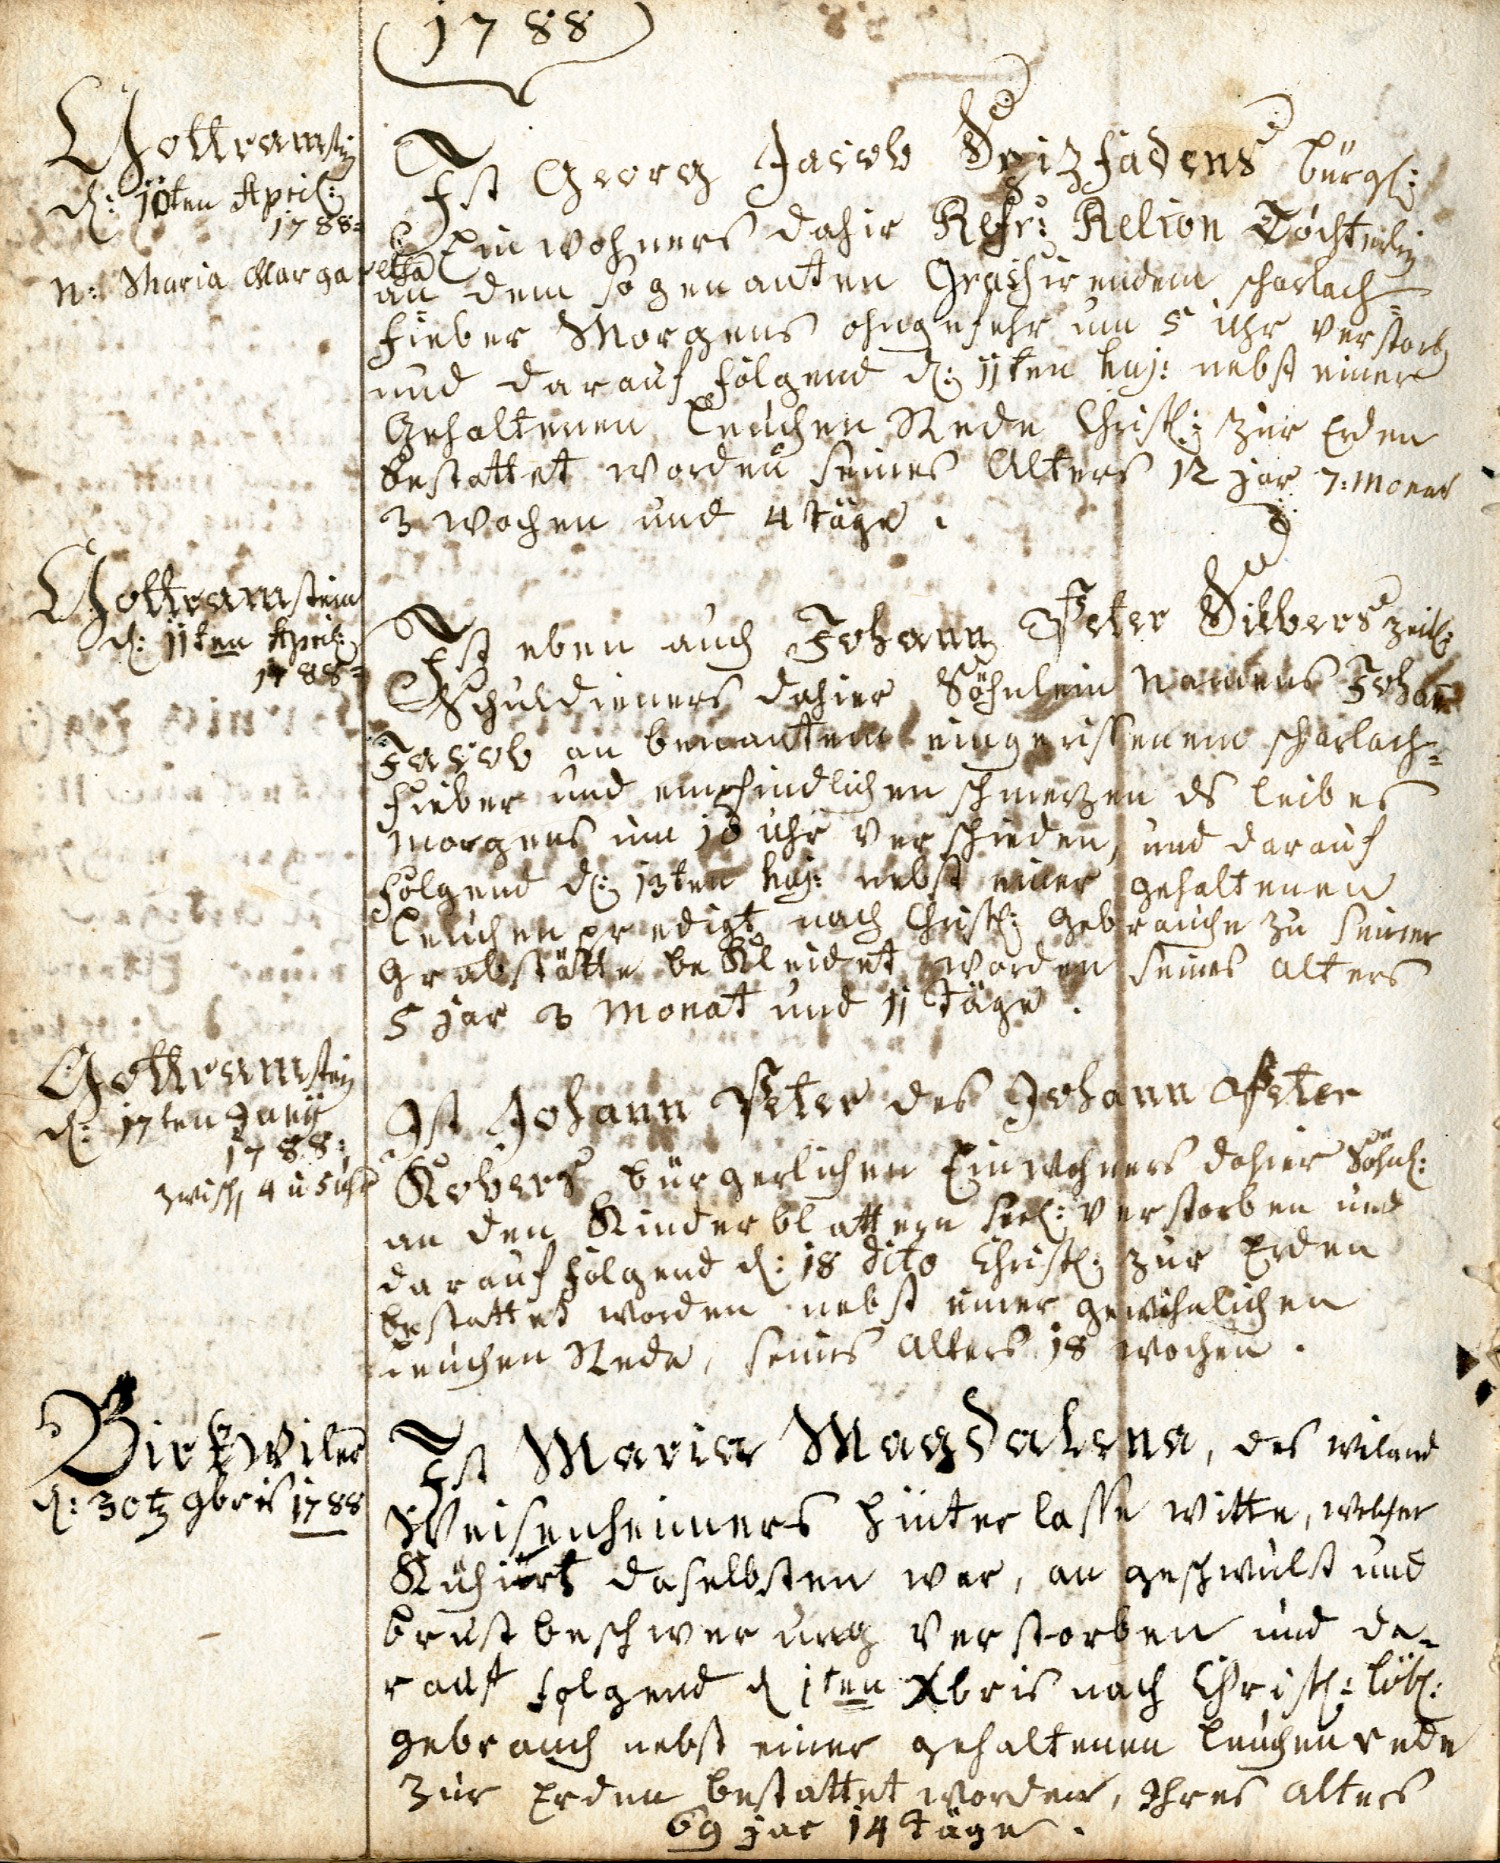 1788
Gottramstein
d: 10ten April:
1788
N: Maria Margaretha
Ist Georg Jacob Seizfadens bürgl:
Einwohners dahir Refr: Relion Töchterlein
an dem so genanten Grasirendem scharlach-
fieber Morgens ohngefehr um 5 uhr verstorben
und darauf folgend d: 11ten huj: nebst einer
Gehaltenen Leuchen Rede Christl: zur Erden
bestattet worden seines Alters 12 jar 7: Monat
3 wochen und 4 täge.
Gottramstein
d: 11ten April:
1788
Ist eben auch Johann Peter Silbers zeitl:
Schuldieners dahier Söhnlein Namens Johann
Jacob an benantem eingerissenem scharlach-
fieber und empfindlichen schmerzen ds leibes
morgens um 10 uhr verschieden, und darauf
folgend d: 13ten huj: nebst einer gehaltenen
Leuchen predigt nach Christl: gebrauche zu seiner
Grabstätte bekleidet worden seines alters
5 jar 3 Monat und 11 täge.
Gottramstein
d: 17ten Juny
1788:
zwisch 4 u 5 uhr
Ist Johann Peter des Johann Peter
Kobers bürgerlichen Einwohners dahier Söhnl:
an den Kinderblattern seel: verstorben und
darauf folgend d: 18 dito Christl: zur Erden
bestattet worden nebst einer gewöhnlichen
Leuchen Rede, seines alters 18 wochen.
Birkwiler
d: 30tz 9bris 1788
Ist Maria Magdalena, des wiland
Weisenheimers hinterlasse witte, welcher
Kuhirt daselbsten war, an geschwulst und
brustbeschwerung verstorben und da-
rauf folgend d 1ten Xbris nach Christl: löbl:
gebrauch nebst einer gehaltenen leuchenrede
zur Erden bestattet worden, Ihres alters
69 jar 14 täge.